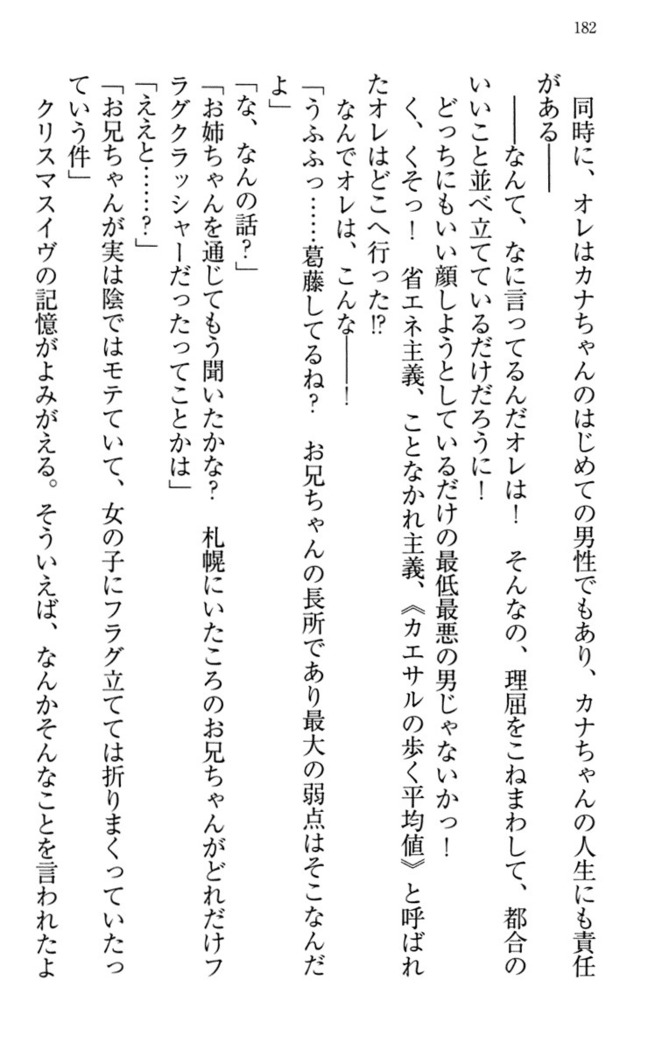 182
同時に、オレはカナちゃんのはじめての男性でもあり、カナちゃんの人生にも責任
がある――
――なんて、なに言ってるんだオレは！　そんなの、理屈をこねまわして、都合の
いいこと並べ立てているだけだろうに！
どっちにもいい顔しようとしているだけの最低最悪の男じゃないかっ！
く、くそっ！　省エネ主義、ことなかれ主義、《カエサルの歩く平均値》と呼ばれ
たオレはどこへ行った!?
なんでオレは、こんな――！
「うふふっ……葛藤してるね？　お兄ちゃんの長所であり最大の弱点はそこなんだ
よ」
「な、なんの話？」
「お姉ちゃんを通じてもう聞いたかな？　札幌にいたころのお兄ちゃんがどれだけフ
ラグクラッシャーだったってことかは」
「ええと……？」
「お兄ちゃんが実は陰ではモテていて、女の子にフラグ立てては折りまくっていたっ
ていう件」
クリスマスイヴの記憶がよみがえる。そういえば、なんかそんなことを言われたよ